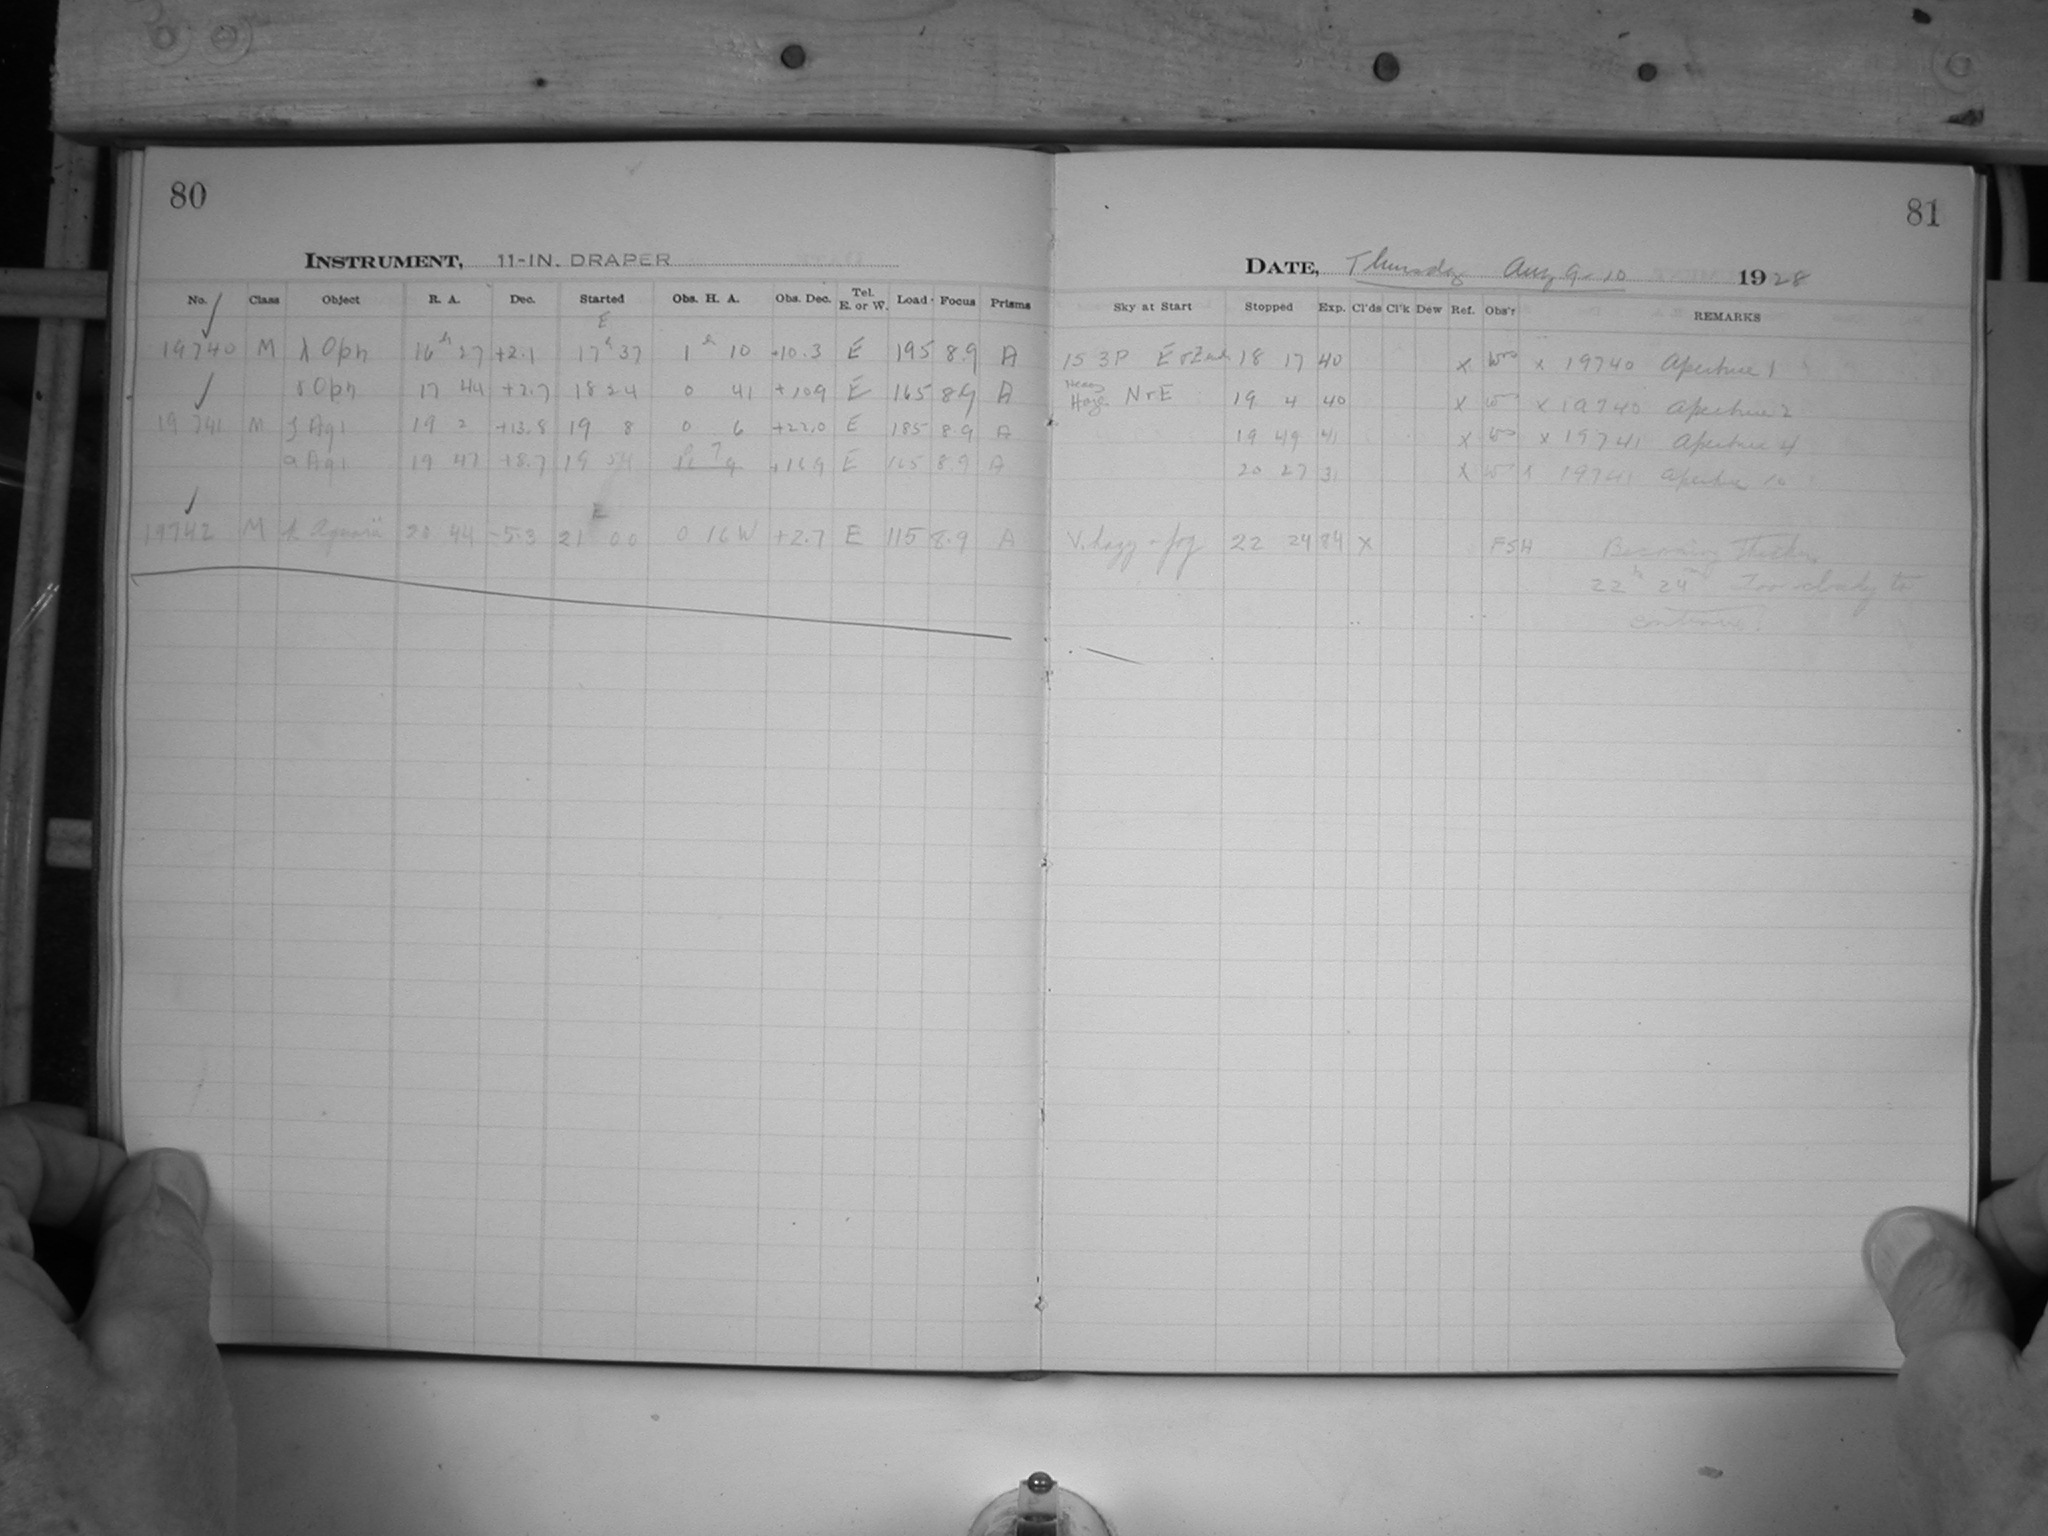 80
INSTRUMENT, 11-IN. DRAPER
No. Class Object R. A. Dec. Started Obs. H. A. Obs. Dec. Tel. E. or W. Load Focus Prisms
E
19740 M λ Oph 16h 27 +2.1 17h 37 1h 10 +10.3 E 195 8.9 A
γ Oph 17 44 +2.7 18 24 0 41 +10.9 E 165 8.9 A
19741 M ζ Aql 19 2 +13.8 19 8 0 6 +22.0 E 185 8.9 A
α Aql 19 47 +8.7 19 +16.9 E 165 8.9 A
E
19742 M 20 44 -5.3 21 00 0 16 W +2.7 E 115 8.9 A
81
DATE, Thursday Aug 9-10 1928
Sky at Start Stopped Exp. Cl'ds Cl'k Dew Ref. Obs'r REMARKS
15 3P 18 17 40 x x 19740 Aperture 1
Heavy
Haze N+E 19 4 40 x x 19740 Aperture 2
19 49 41 x x 19741 Aperture 4
20 27 31 x x 19741 Aperture 10
V. hazy + fog 22 24 84 x FSH Becoming thicker.
22h 24m Too cloudy to
continue.